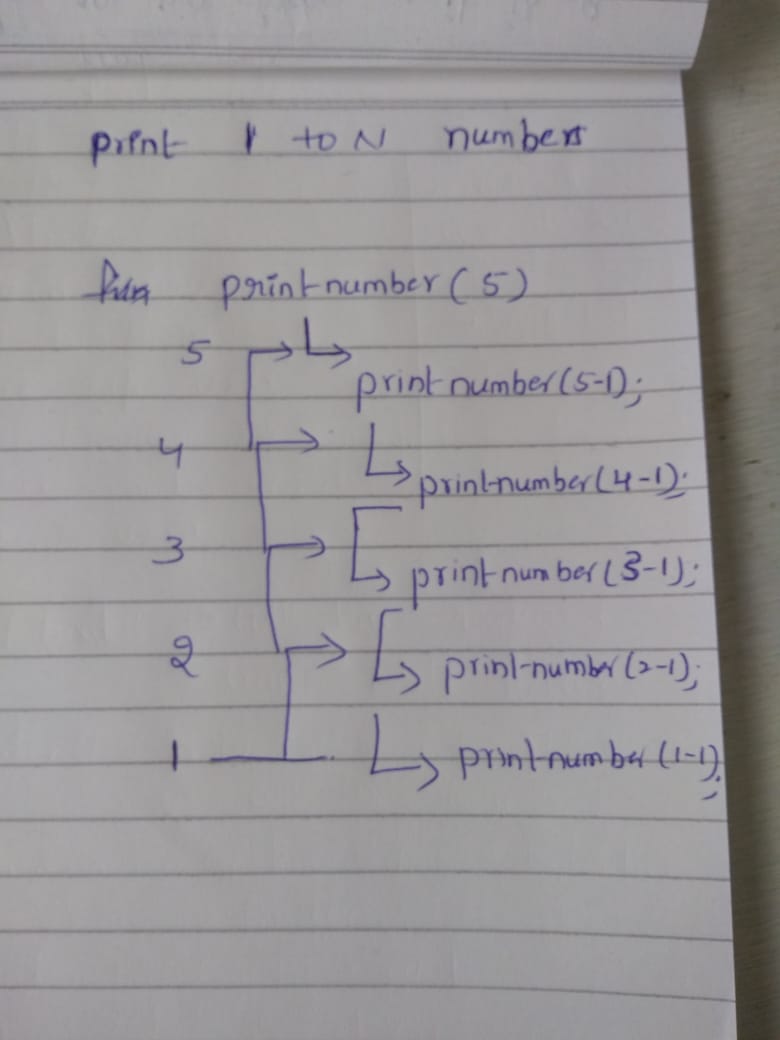 print 1 to N numbers
fun printnumber(5)
5
printnumber(5-1);
4
printnumber(4-1);
3
printnumber(3-1);
2
printnumber(2-1);
1 printnumber(1-1);